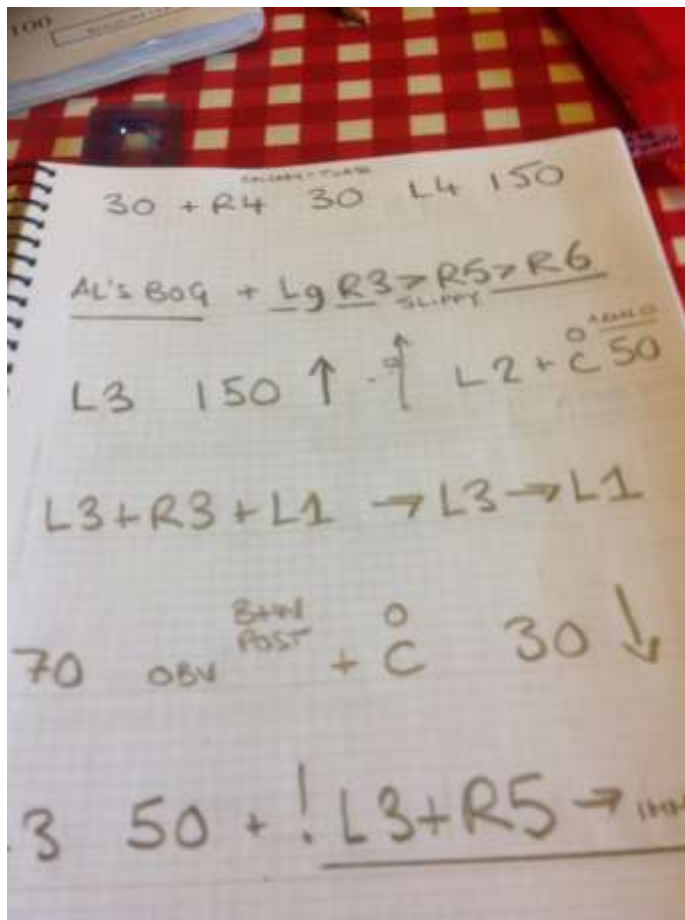 100
30 + R4 30 L4 150
AL'S BOG + Lg R3 > R5 > R6
SLIPPY
L3 150 ↑ L2 + C 50
L3+R3+L1 → L3 → L1
70 OBV POST + C 30 ↓
3 50 + ! L3+R5 →